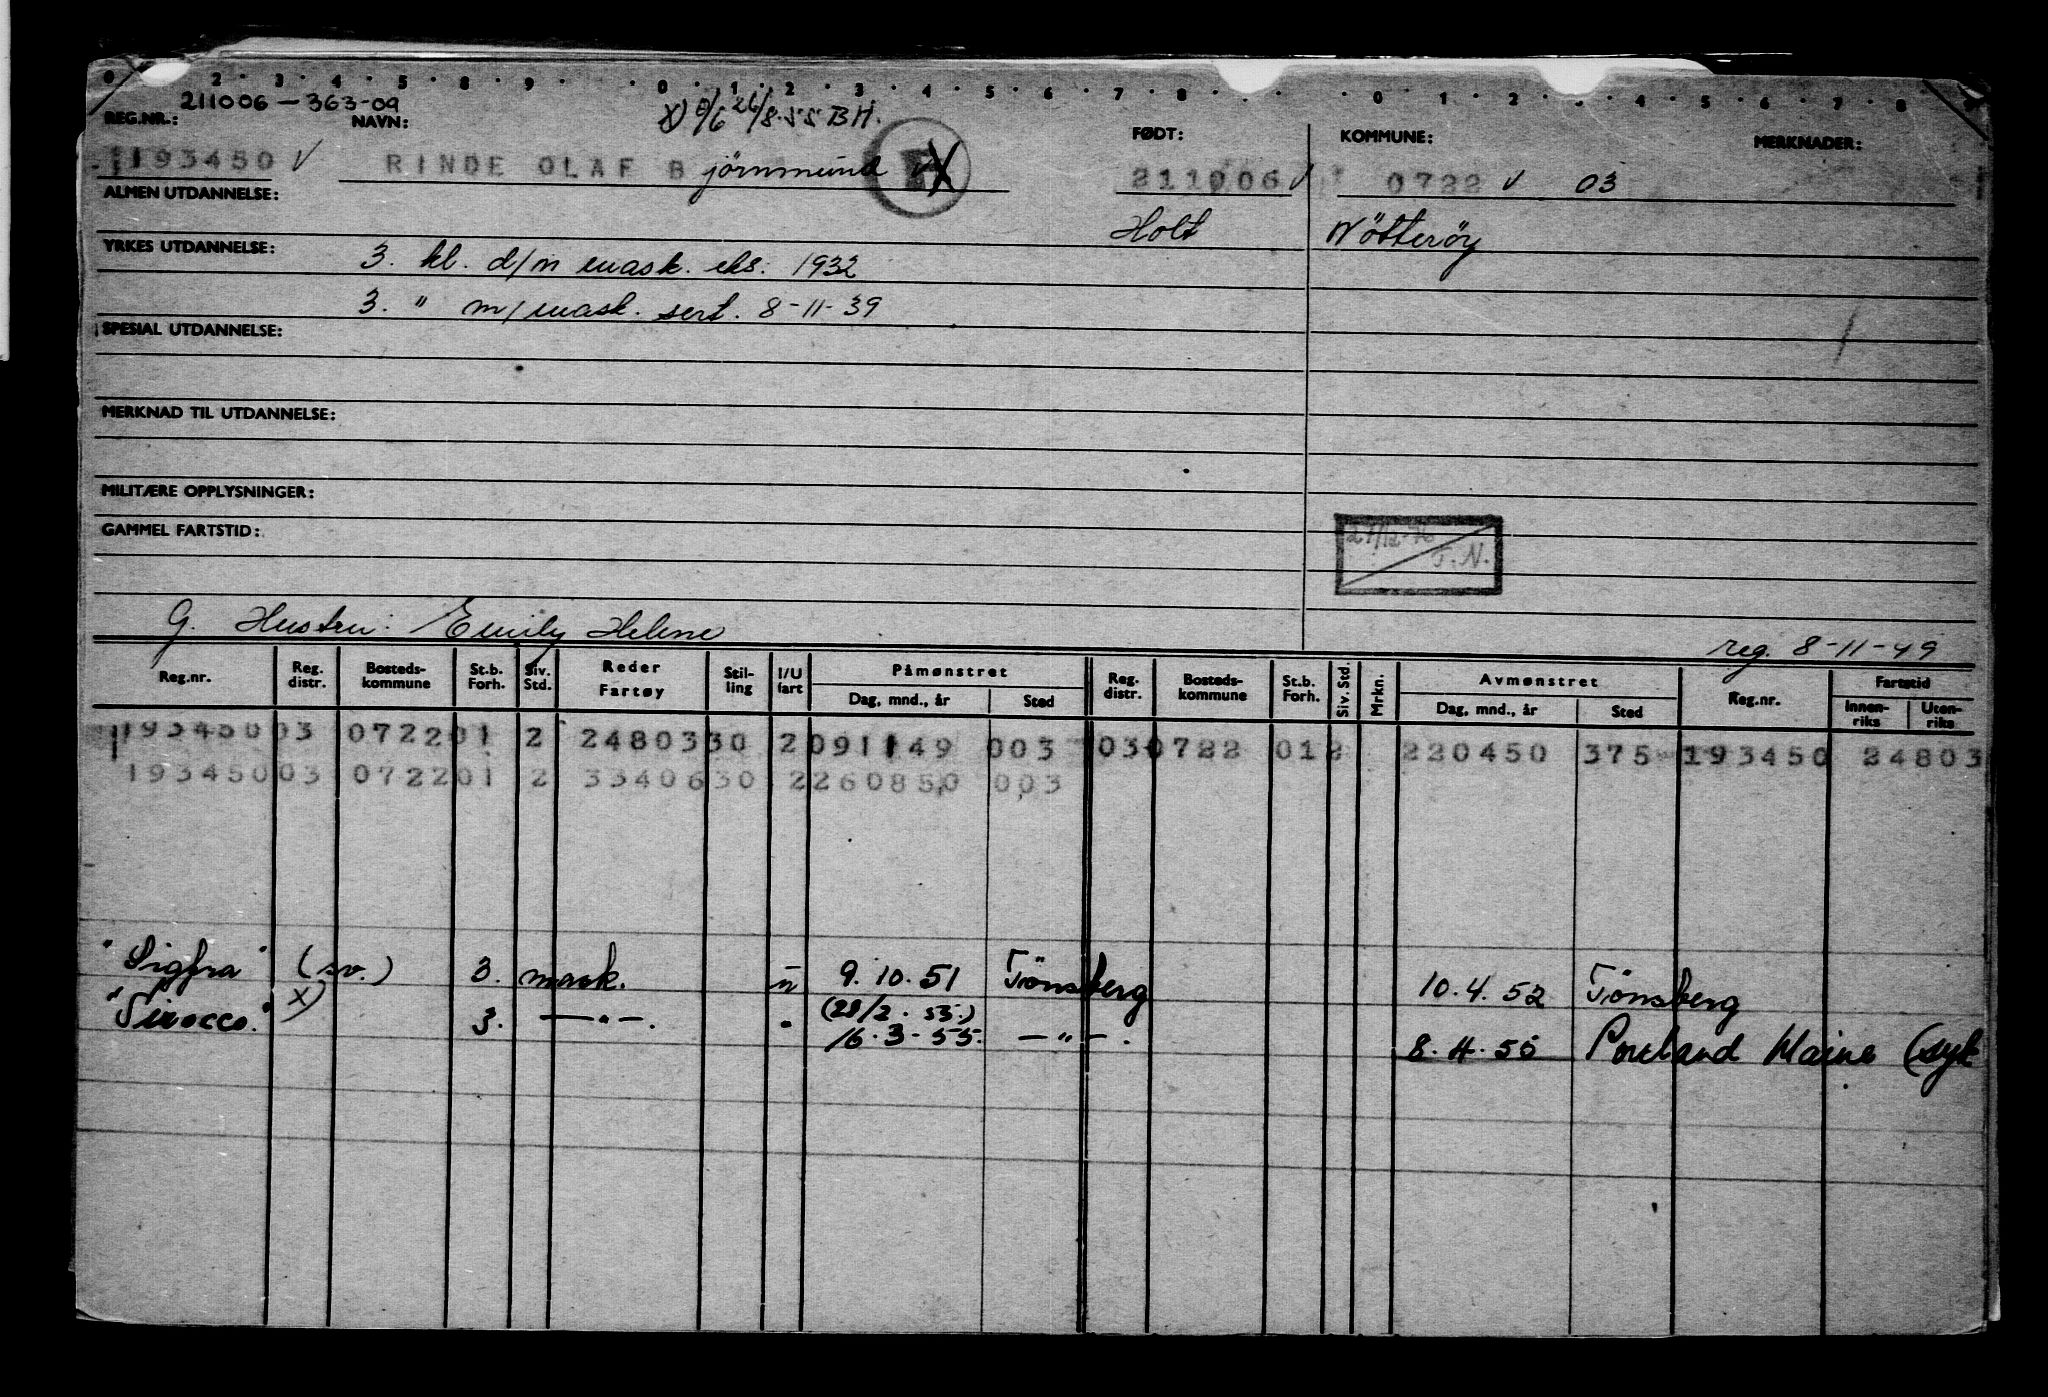 0 2 · 3 · 4 · 5 · 8 · 9 · · 0 · 1 · 2 · 3 · 4 · 5 · 6 · 7 · 8 · · · 0 · 1 · 2 · 3 · 4 · 5 · 6 · 7 · 8 · 9
211006-363-09
26/8-55 BH.
REG.NR.: NAVN: FØDT: KOMMUNE: MERKNADER:
193450 √ RINDE OLAF Björnmund √ X 211006 √ 0722 √ 03
ALMEN UTDANNELSE:
Holt Nötteröy
YRKES UTDANNELSE: 3. kl. d/m mask. eks. 1932
3. " m/mask. sert. 8-11-39
SPESIAL UTDANNELSE:
MERKNAD TIL UTDANNELSE:
MILITÆRE OPPLYSNINGER:
GAMMEL FARTSTID:
T.N.
G. Hustru: Emily Helene
reg. 8-11-49
Reg.nr. Reg. distr. Bosteds-kommune St.b. Forh. Siv. Std. Reder Fartøy Stil-ling I/U fart Påmønstret Dag, mnd., år Sted Reg. distr. Bosteds-kommune St.b. Forh. Siv. Std. Mrkn. Avmønstret Dag, mnd., år Sted Reg.nr. Fartstid Innen-riks Uten-riks
193450 03 0722 01 2 24803 30 2 091149 003 03 0722 01 2 220450 375 193450 24803
193450 03 0722 01 2 33406 30 2 260850 003
"Sigfra" (sv.) 3. mask. u 9.10.51 Tönsberg 10.4.52 Tönsberg
"Sirocco." X) 3. —"—. " (28/2.55.)
16.3-55. —"—. 8.4.55 Portland Maine (syk